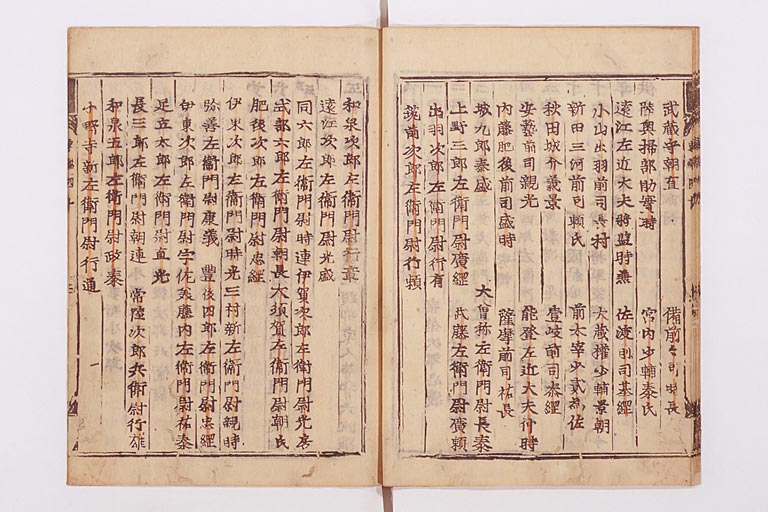 武蔵守朝直 備前前司時長
陸奥掃部助實時 宮内少輔泰氏
遠江左近大夫將監時兼 佐渡前司基綱
小山出羽前司長村 大蔵權少輔景朝
新田三河前司頼氏 前太宰少貳為佐
秋田城介義景 壹岐前司泰綱
安藝前司親光 能登左近大夫仲時
内藤肥後前司盛時 薩摩前司祐長
城九郎泰盛 大曽祢左衛門尉長泰
上野三郎左衛門尉廣綱 武藤左衛門尉廣頼
出羽次郎左衛門尉行有
筑前次郎左衛門尉行頼
和泉次郎左衛門尉行章
遠江次郎左衛門尉光盛
同六郎左衛門尉時連 伊賀次郎左衛門尉光房
式部六郎左衛門尉朝長 大須賀左衛門尉朝氏
肥後次郎左衛門尉忠綱
伊東次郎左衛門尉時光 三村新左衛門尉親時
弥善左衛門尉康義 豊後四郎左衛門尉忠綱
伊東次郎左衛門尉 宇佐美藤内左衛門尉祐泰
足立太郎左衛門尉直光
長三郎左衛門尉朝連 常陸次郎兵衛尉行雄
和泉五郎左衛門尉政泰
小野寺新左衛門尉行通